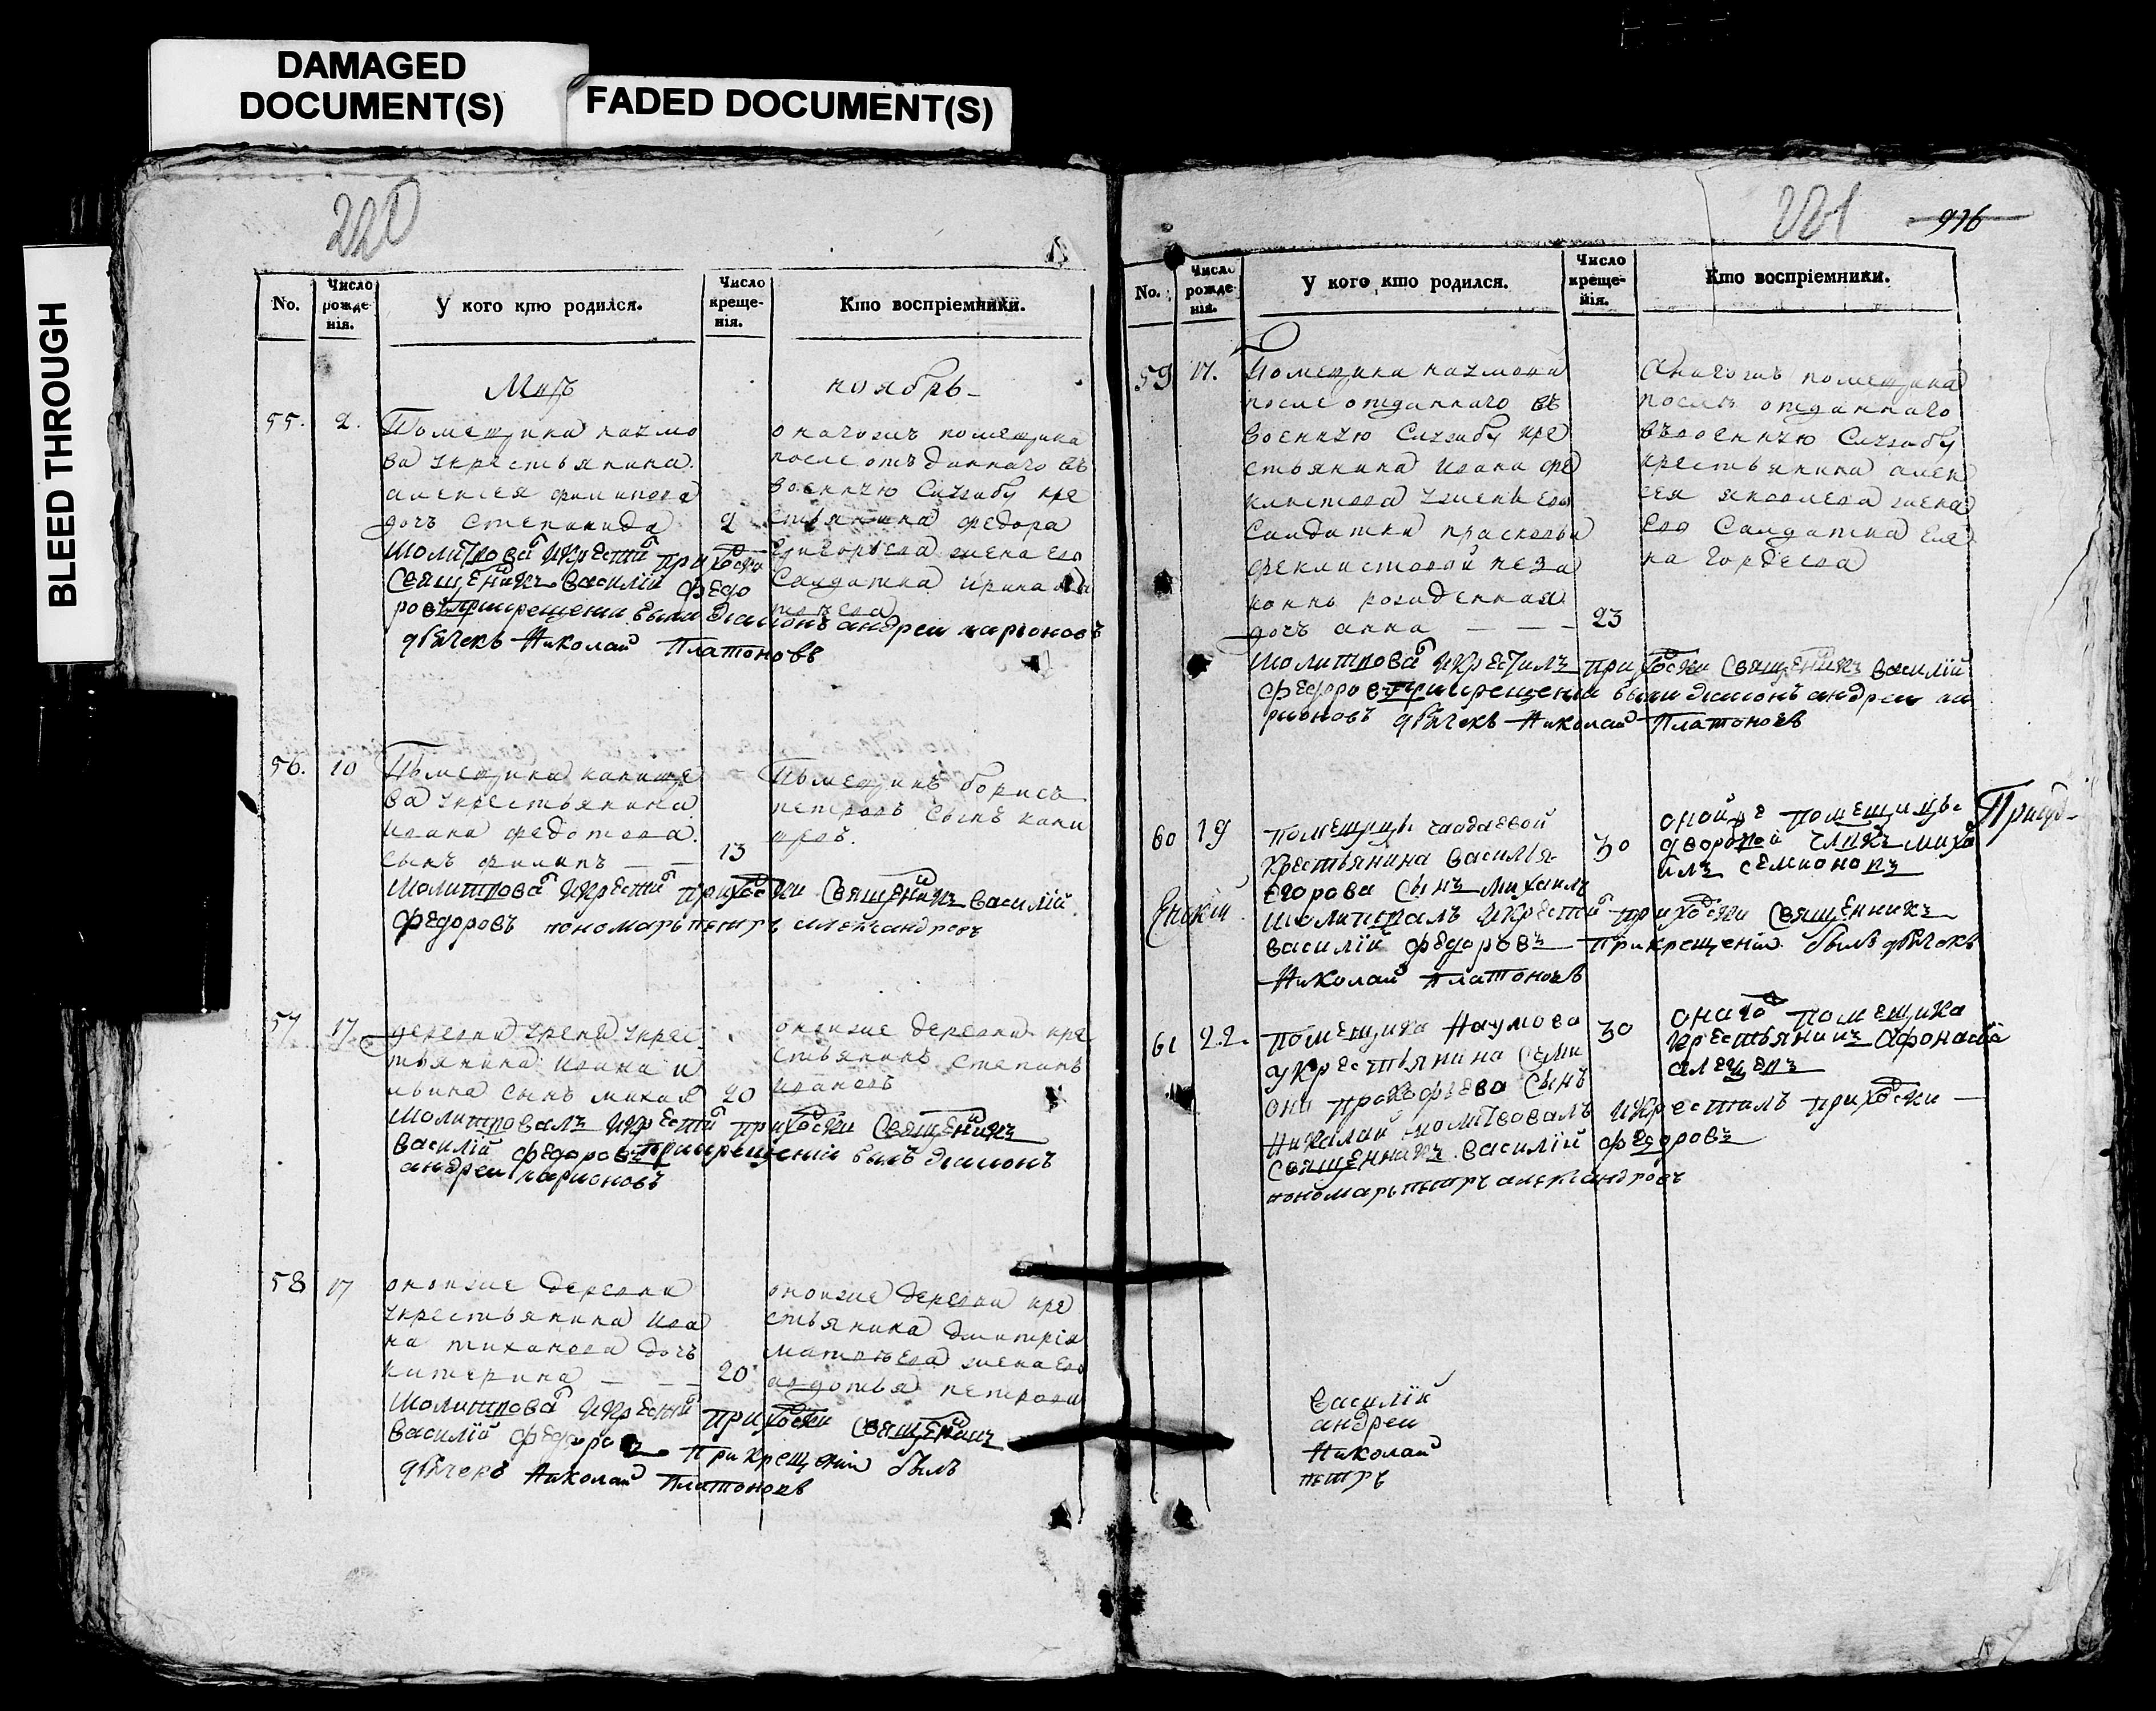 DAMAGED
DOCUMENT(S)
FADED DOCUMENT(S)
BLEED THROUGH
220
No.
Число рожденія.
У кого кто родился.
Число крещенія.
Кто воспріемники.
Мцъ ноябрь
55. 2.
Помещика наумо
ва укрестьянина
алексея филипова
дочь степанида 2
оногожъ помещика
после отъданнаго въ
военную службу кре
стьянина федора
григорьева жена его
салдатка ирина
Молитвова икрести приходски
священикъ василій федо
ровъ прикрещени были диаконъ андреи ларионовъ
дьячекъ Николаи Платоновъ
56. 10
Помещика канище
ва укрестьянина
ивана федотова
сынъ филипъ — — 13
Помещикъ борисъ
петровъ сынъ кани
щевъ.
Молитвова икрести приходски священикъ василій
федоровъ пономарь петръ александровъ
57 17
тьянина ивана и
сынъ михай 20
оноиже деревни кре
стьянинъ степанъ
ивановъ
Молитвовалъ икрести приходски священикъ
василій федоровъ прикрещеніи былъ диаконъ
андреи ларионовъ
58 17
оноиже деревни
укрестьянина ива
на тиханова дочь
катерина — — 20
оноиже деревни кре
стьянина дмитрія
матвѣева жена его
авдотья петрова
Молитвова икрести приходски священикъ
василій федоровъ Прикрещеніи былъ
дьячекъ Николаи Платоновъ
221
976
No.
Число рожденія.
У кого кто родился.
Число крещенія.
Кто воспріемники.
59 17.
Помещика наумова
после отданнаго въ
военную службу кре
стьянина ивана фе
клистова ужены его
салдатки прасковьи
феклистовой неза
конно рожденная
дочь анна — — — 23
Оногожъ помещика
после отданнаго
въ военную службу
крестьянина алек
сея яковлева жена
его салдатка еле
на гордеева
Молитвова икрестилъ приходски священикъ василій
федоровъ прикрещеніи были диаконъ андреи ла
рионовъ дьячекъ Николаи Платоновъ
60 19
помещицы чаадаевой
крестьянина василья
егорова сынъ михаилъ
30
оной же помещицы
дворовой члвкъ миха
илъ семионовъ
молитвовалъ икрести приходски священникъ
василій федоровъ Прикрещеніи былъ дьячокъ
Николаи Платоновъ
61 22.
помещика Наумова
укрестьянина семи
она прокофьева сынъ
30
онаго помещика
крестьянинъ Афонасій
Николай молитвовалъ икрестилъ приходски
священникъ василій федоровъ
пономарь петръ александровъ
василій
андреи
Николаи
петръ